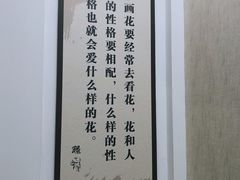 画花要经常去看花，花和人
的性格要相配，什么样的性
格也就会爱什么样的花。